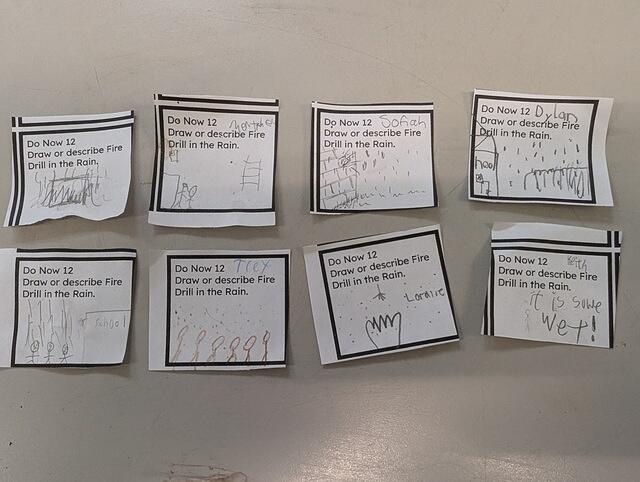 Do Now 12
Draw or describe Fire
Drill in the Rain.
Do Now 12
Draw or describe Fire
Drill in the Rain.
Do Now 12 Sofiah
Draw or describe Fire
Drill in the Rain.
Do Now 12 Dylan
Draw or describe Fire
Drill in the Rain.
Do Now 12
Draw or describe Fire
Drill in the Rain.
School
Do Now 12 Trex
Draw or describe Fire
Drill in the Rain.
Do Now 12
Draw or describe Fire
Drill in the Rain.
Do Now 12
Keith
Draw or describe Fire
Drill in the Rain.
it is sowe
wet!